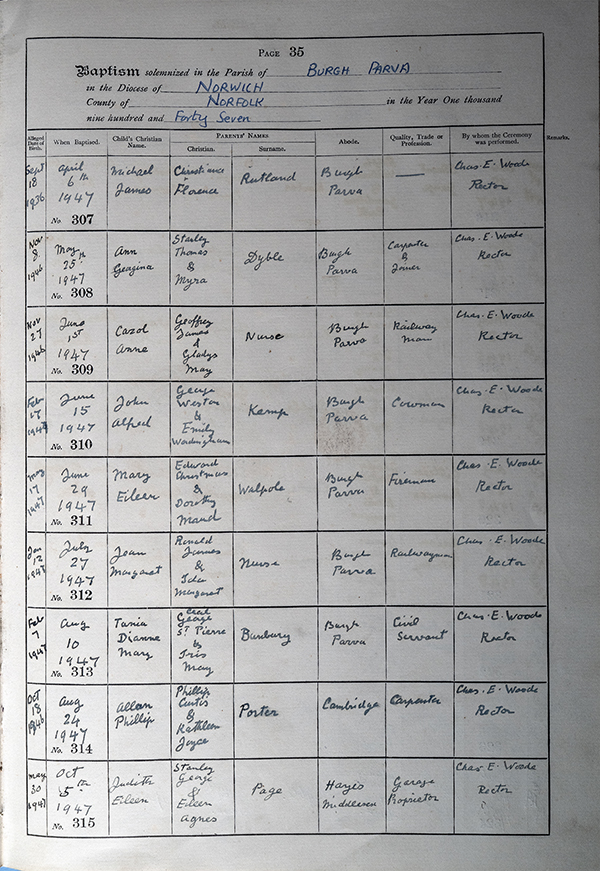 PAGE 35
Baptism solemnized in the Parish of BURGH PARVA
in the Diocese of NORWICH
County of NORFOLK in the Year One thousand
nine hundred and Forty Seven
Alleged Date of Birth. When Baptised. Child's Christian Name. PARENTS' NAMES Christian. Surname. Abode. Quality, Trade or Profession. By whom the Ceremony was performed. Remarks.
Sept 18 1936 April 6th 1947 No. 307 Michael James Florence Rutland Burgh Parva — Chas. E. Woode Rector
Nov 8 1946 May 25th 1947 No. 308 Ann Geagina Stanley Thomas & Myra Dyble Burgh Parva Carpenter & Joiner Chas. E. Woode Rector
Nov 27 1946 June 1st 1947 No. 309 Carol Anne Geoffrey James & Gladys May Nurse Burgh Parva Railway Man Chas. E. Woode Rector
Feb 17 June 15 1947 No. 310 John Alfred George Weston & Emily Kemp Burgh Parva Cowman Chas. E. Woode Rector
May 17 1947 June 29 1947 No. 311 Mary Eileen Edward Christmas & Dorothy Maud Walpole Burgh Parva Fireman Chas. E. Woode Rector
Jan 12 July 27 1947 No. 312 Joan Margaret Ronald James & Ida Margaret Nurse Burgh Parva Railwayman Chas. E. Woode Rector
Feb 7 1947 Aug 10 1947 No. 313 Tania Dianne Mary Cecil George St Pierre & Iris May Bunbury Burgh Parva Civil Servant Chas. E. Woode Rector
Oct 18 1946 Aug 24 1947 No. 314 Allan Phillip Phillip Curtis & Kathleen Joyce Porter Cambridge Carpenter Chas. E. Woode Rector
May 30 Oct 5th 1947 No. 315 Judith Eileen Stanley George & Eileen Agnes Page Hayes Middlesex Garage Proprietor Chas. E. Woode Rector